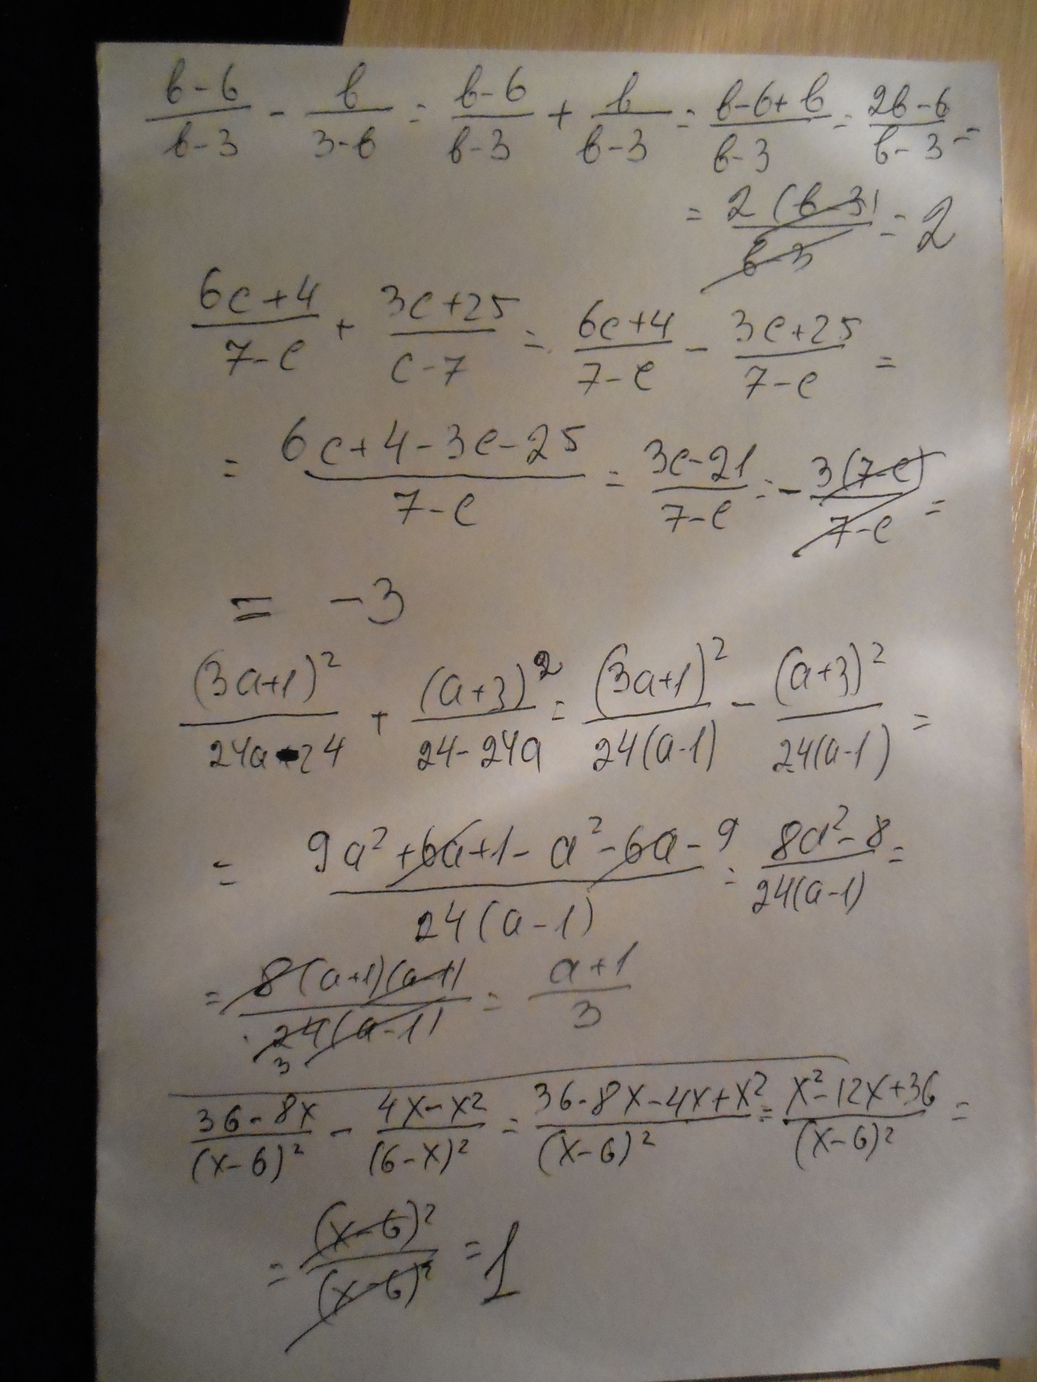 (в-6)/(в-3) - в/(3-в) = (в-6)/(в-3) + в/(в-3) = (в-6+в)/(в-3) = (2в-6)/(в-3) =
= 2(в-3)/(в-3) = 2
(6c+4)/(7-c) + (3c+25)/(c-7) = (6c+4)/(7-c) - (3c+25)/(7-c) =
= (6c+4-3c-25)/(7-c) = (3c-21)/(7-c) = - 3(7-c)/(7-c) =
= -3
(3a+1)²/(24a-24) + (a+3)²/(24-24a) = (3a+1)²/(24(a-1)) - (a+3)²/(24(a-1)) =
= (9a²+6a+1-a²-6a-9)/(24(a-1)) = (8a²-8)/(24(a-1)) =
= 8(a+1)(a-1)/(24(a-1)) = (a+1)/3
3
(36-8x)/(x-6)² - (4x-x²)/(6-x)² = (36-8x-4x+x²)/(x-6)² = (x²-12x+36)/(x-6)² =
= (x-6)²/(x-6)² = 1